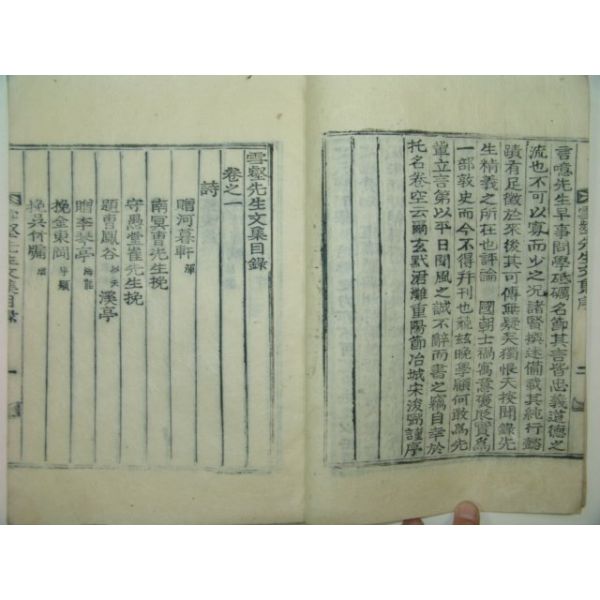 言噫先生早事問學砥礪名節其言皆忠義道德之
流也不可以寡而少之況諸賢撰述備載其純行懿
蹟有足徵於來後其可傳無疑矣獨恨天挍聞錄先
生精義之所在也評論 國朝士禍寓意褒貶實爲
一部敦史而今不得幷刊也玆晩學顧何敢爲先
立言第以平日聞風之誠不辭而書之竊自幸於
托名卷空云爾玄黓涒灘重陽節冶城宋浚弼謹序
雪壑先生文集目錄
卷之一
詩
贈河暮軒
南冥曺先生挽
守愚堂崔先生挽
題曺鳳谷以天溪亭
贈李琴亭
挽金東岡宇顒
挽吳何𡺽
先生文集目錄 一